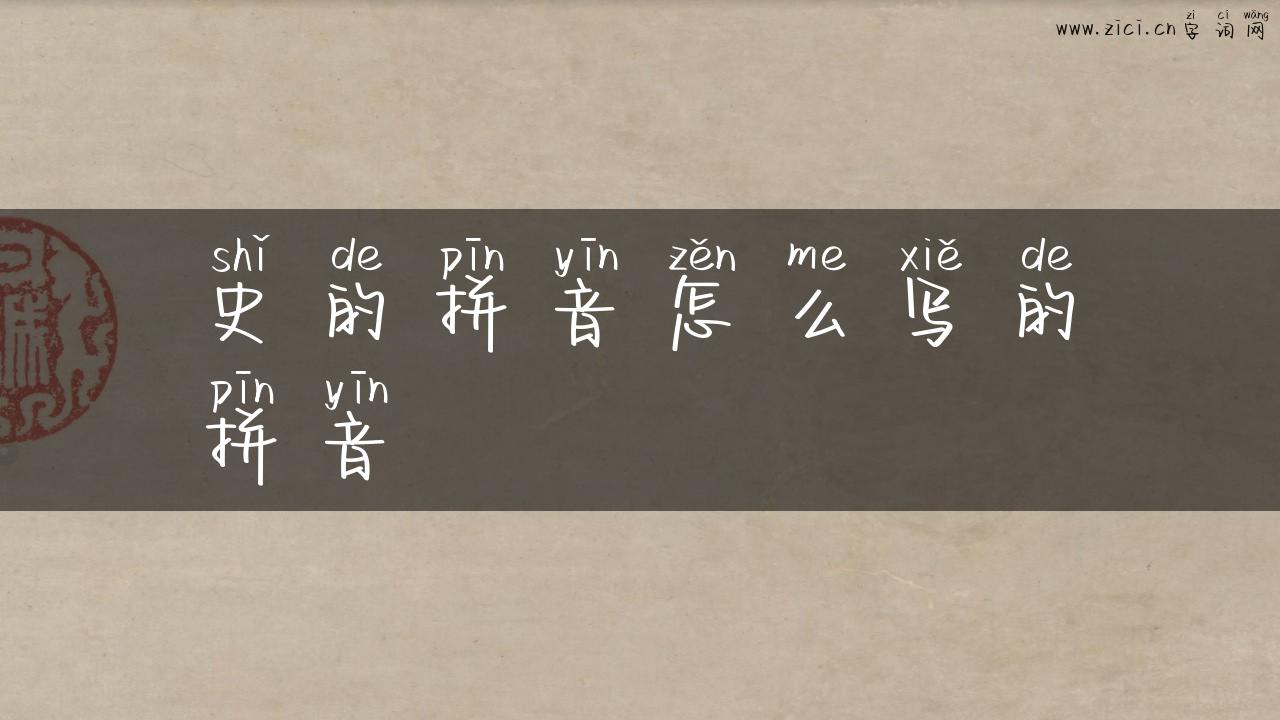 zì cí wǎng
www.zici.cn 字词网
shǐ de pīn yīn zěn me xiě de
史的拼音怎么写的
pīn yīn
拼音